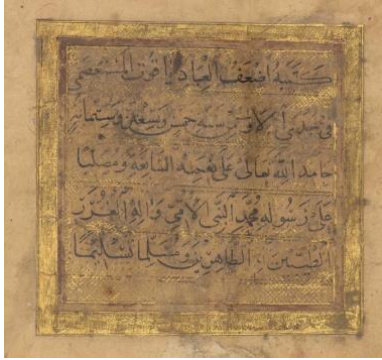 كتبه اضعف العباد ياقوت المستعصمي
في جمدى الاولى سنة خمس وسبعين وستمائه
حامدا لله تعالى على نعمه السابغة ومصليا
على رسوله محمد النبي الامي وآله الغرر
الطيبين الطاهرين ومسلما تسليما